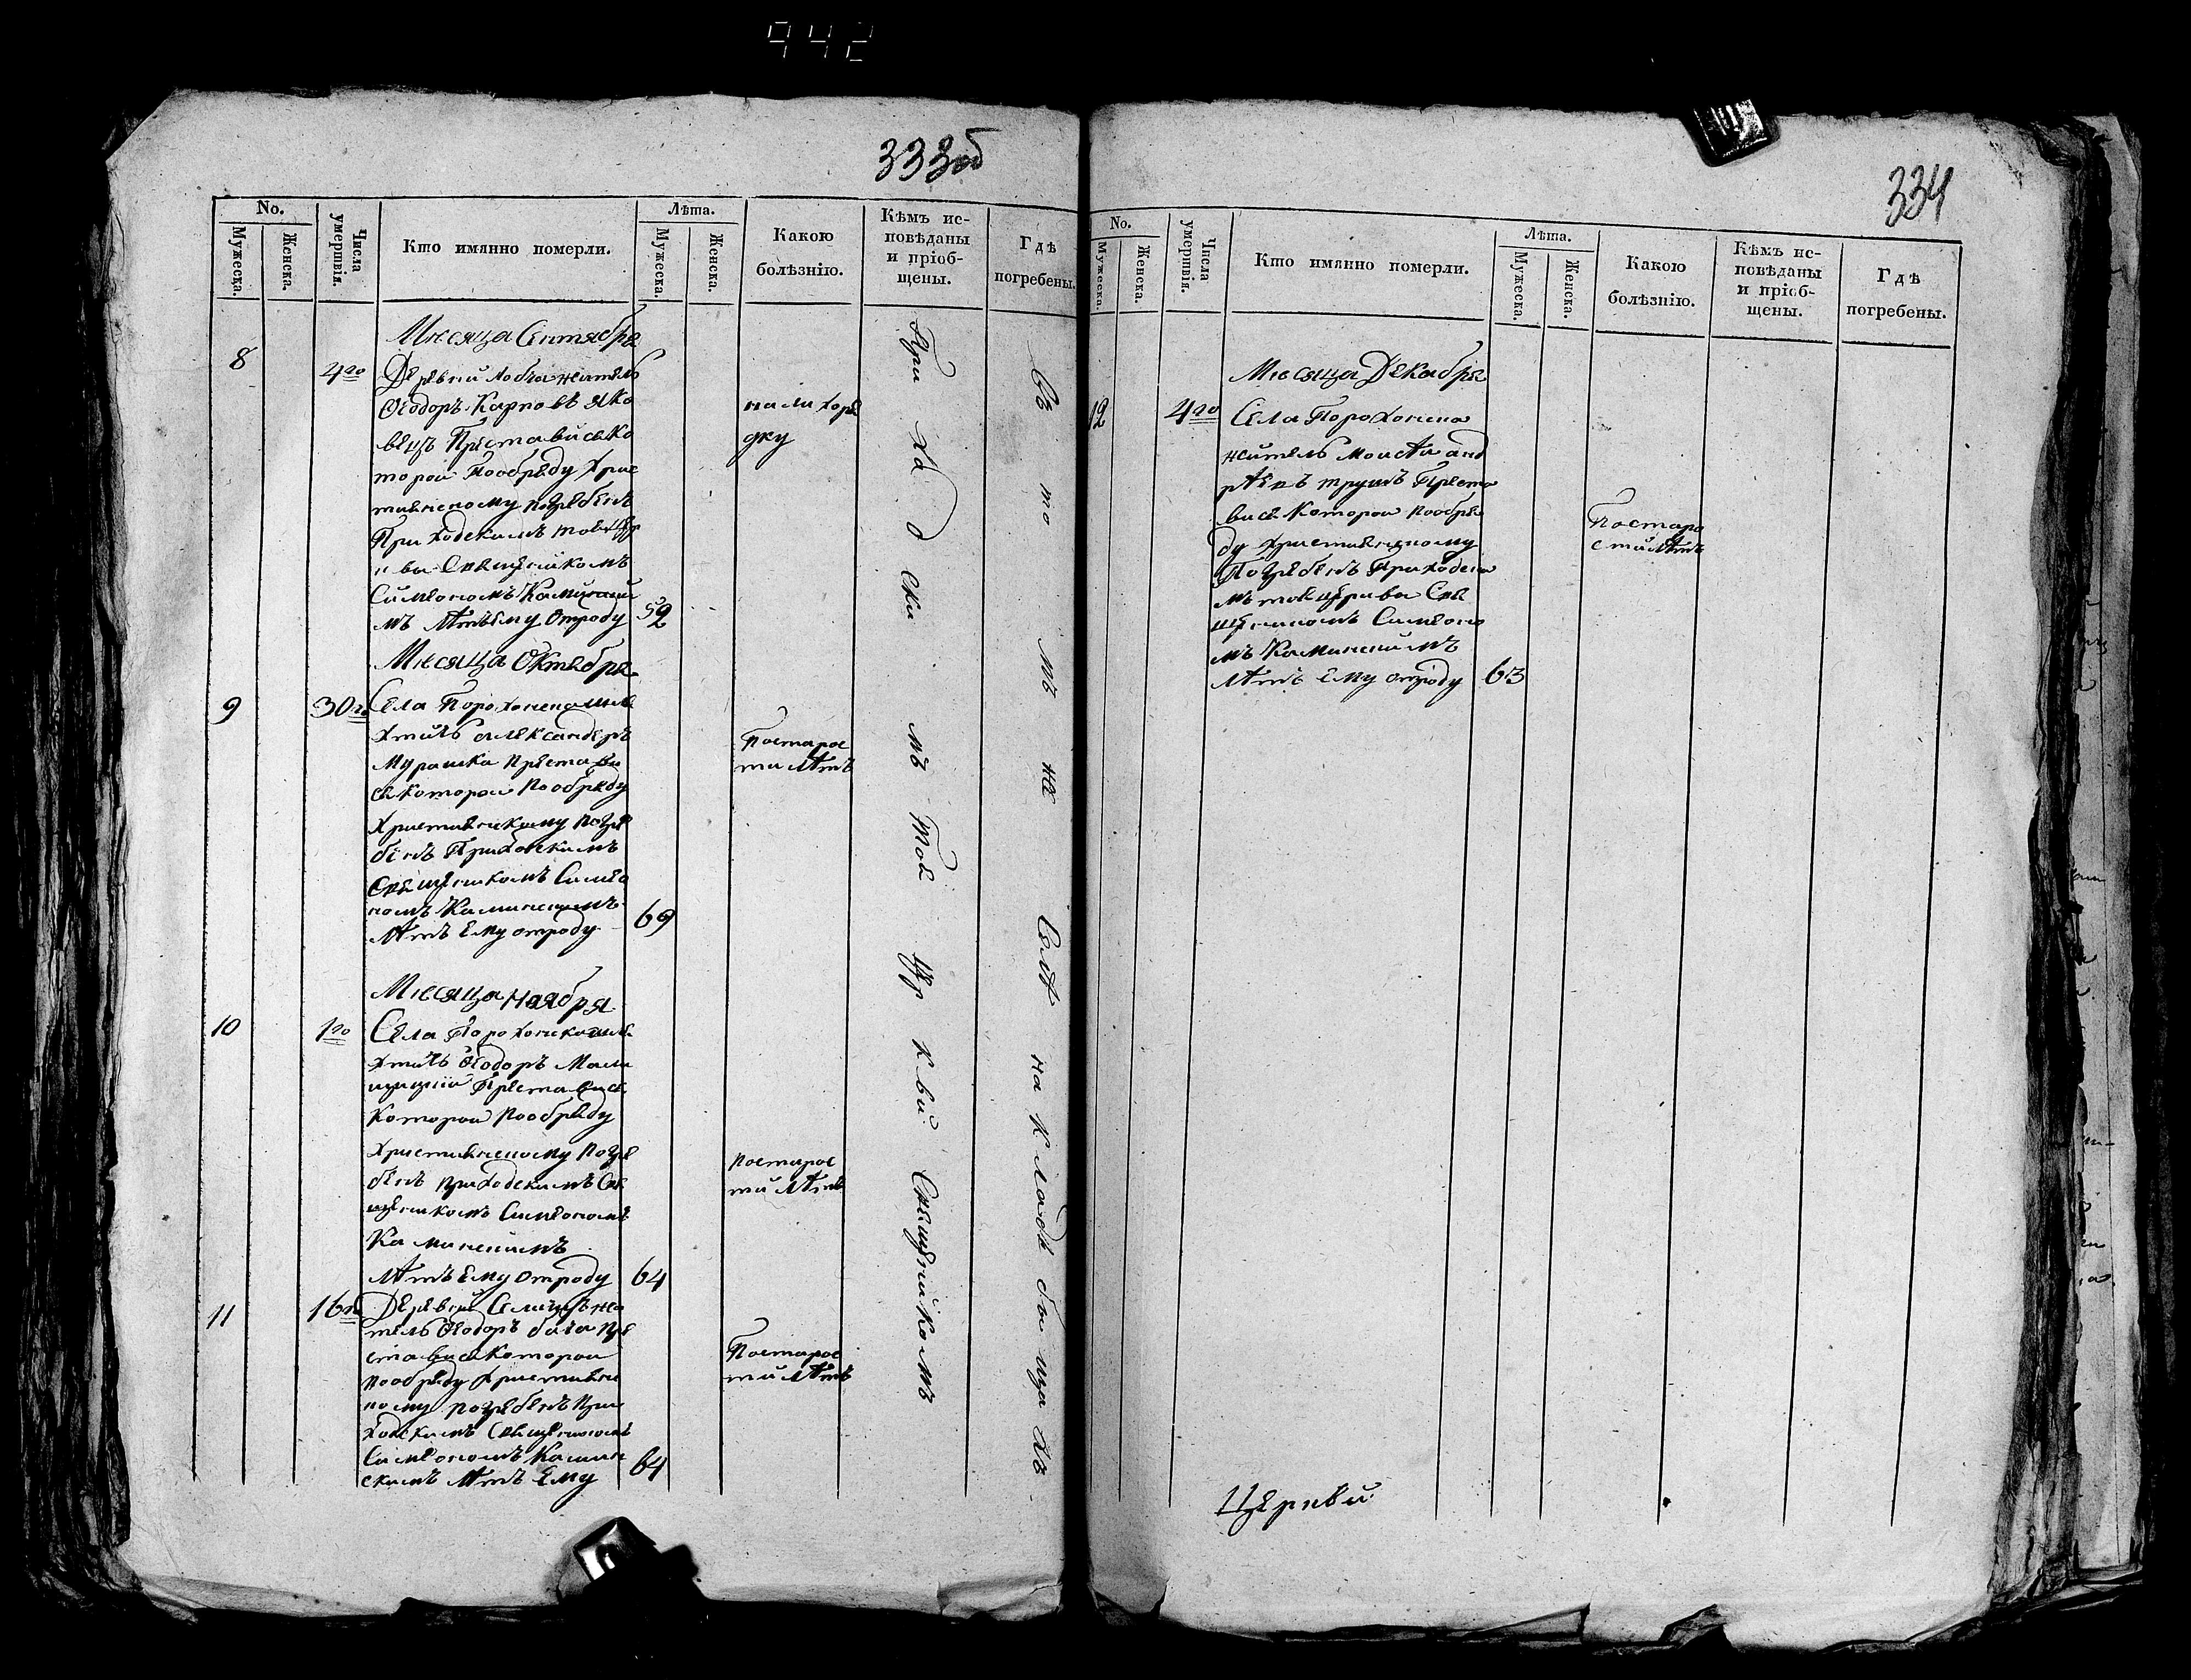 942
333об
No.
Мужеска.
Женска.
Числа умертвія.
Кто имянно померли.
Лѣта.
Мужеска.
Женска.
Какою болѣзнію.
Кѣмъ исповѣданы и пріобщены.
Гдѣ погребены.
Мѣсяца Сентября
8 4го Деревни жытель
Ѳеодоръ Карповъ Яко
вецъ Преставися ко
торои Пообряду Хрис
тиянскому погребенъ
Приходскимъ тоея цер
кви Священникомъ
Симеономъ Каминский
мъ лѣтъ ему отроду 59
на лихора
дку
Мѣсяца Октября
9 30го Села Порохонска шля
хтичъ Александеръ
Мурашка Престави
ся которои Пообряду
Християнскому Погре
бенъ Приходскимъ
Священикомъ Симео
номъ Каминскимъ
лѣтъ Ему отроду 69
Постарос
ти лѣтъ
Мѣсяца Ноября
10 1го Села Порохонска шля
хтичъ Ѳеодоръ
Преставися
Которои Пообряду
Християнскому Погре
бенъ приходскимъ Свя
щеникомъ Симеономъ
Каминскимъ
лѣтъ Ему отроду 64
Постарос
ти лѣтъ
11 16го Деревни жи
тель Ѳеодоръ Пре
ставися Которои
Пообряду Християнс
кому погребенъ При
ходскимъ Священикомъ
Симеономъ Камин
скимъ лѣтъ Ему 64
Постарос
ти лѣтъ
При хо д ски мъ Тоя Цр кви Священикомъ
Въ то мъ же Селѣ на кладбищахъ
334
No.
Мужеска.
Женска.
Числа умертвія.
Кто имянно померли.
Лѣта.
Мужеска.
Женска.
Какою болѣзнію.
Кѣмъ исповѣданы и пріобщены.
Гдѣ погребены.
Мѣсяца Декабря
12 4го Села Порохонска
житель Моисѣй Анд
рѣевъ Преста
вися Которои Пообря
ду Християнскому
Погребенъ Приходски
мъ тоея церкви Свя
щеникомъ Симеоно
мъ Каминскимъ
лѣтъ Ему отроду 63
Постаро
сти лѣтъ
Церкви